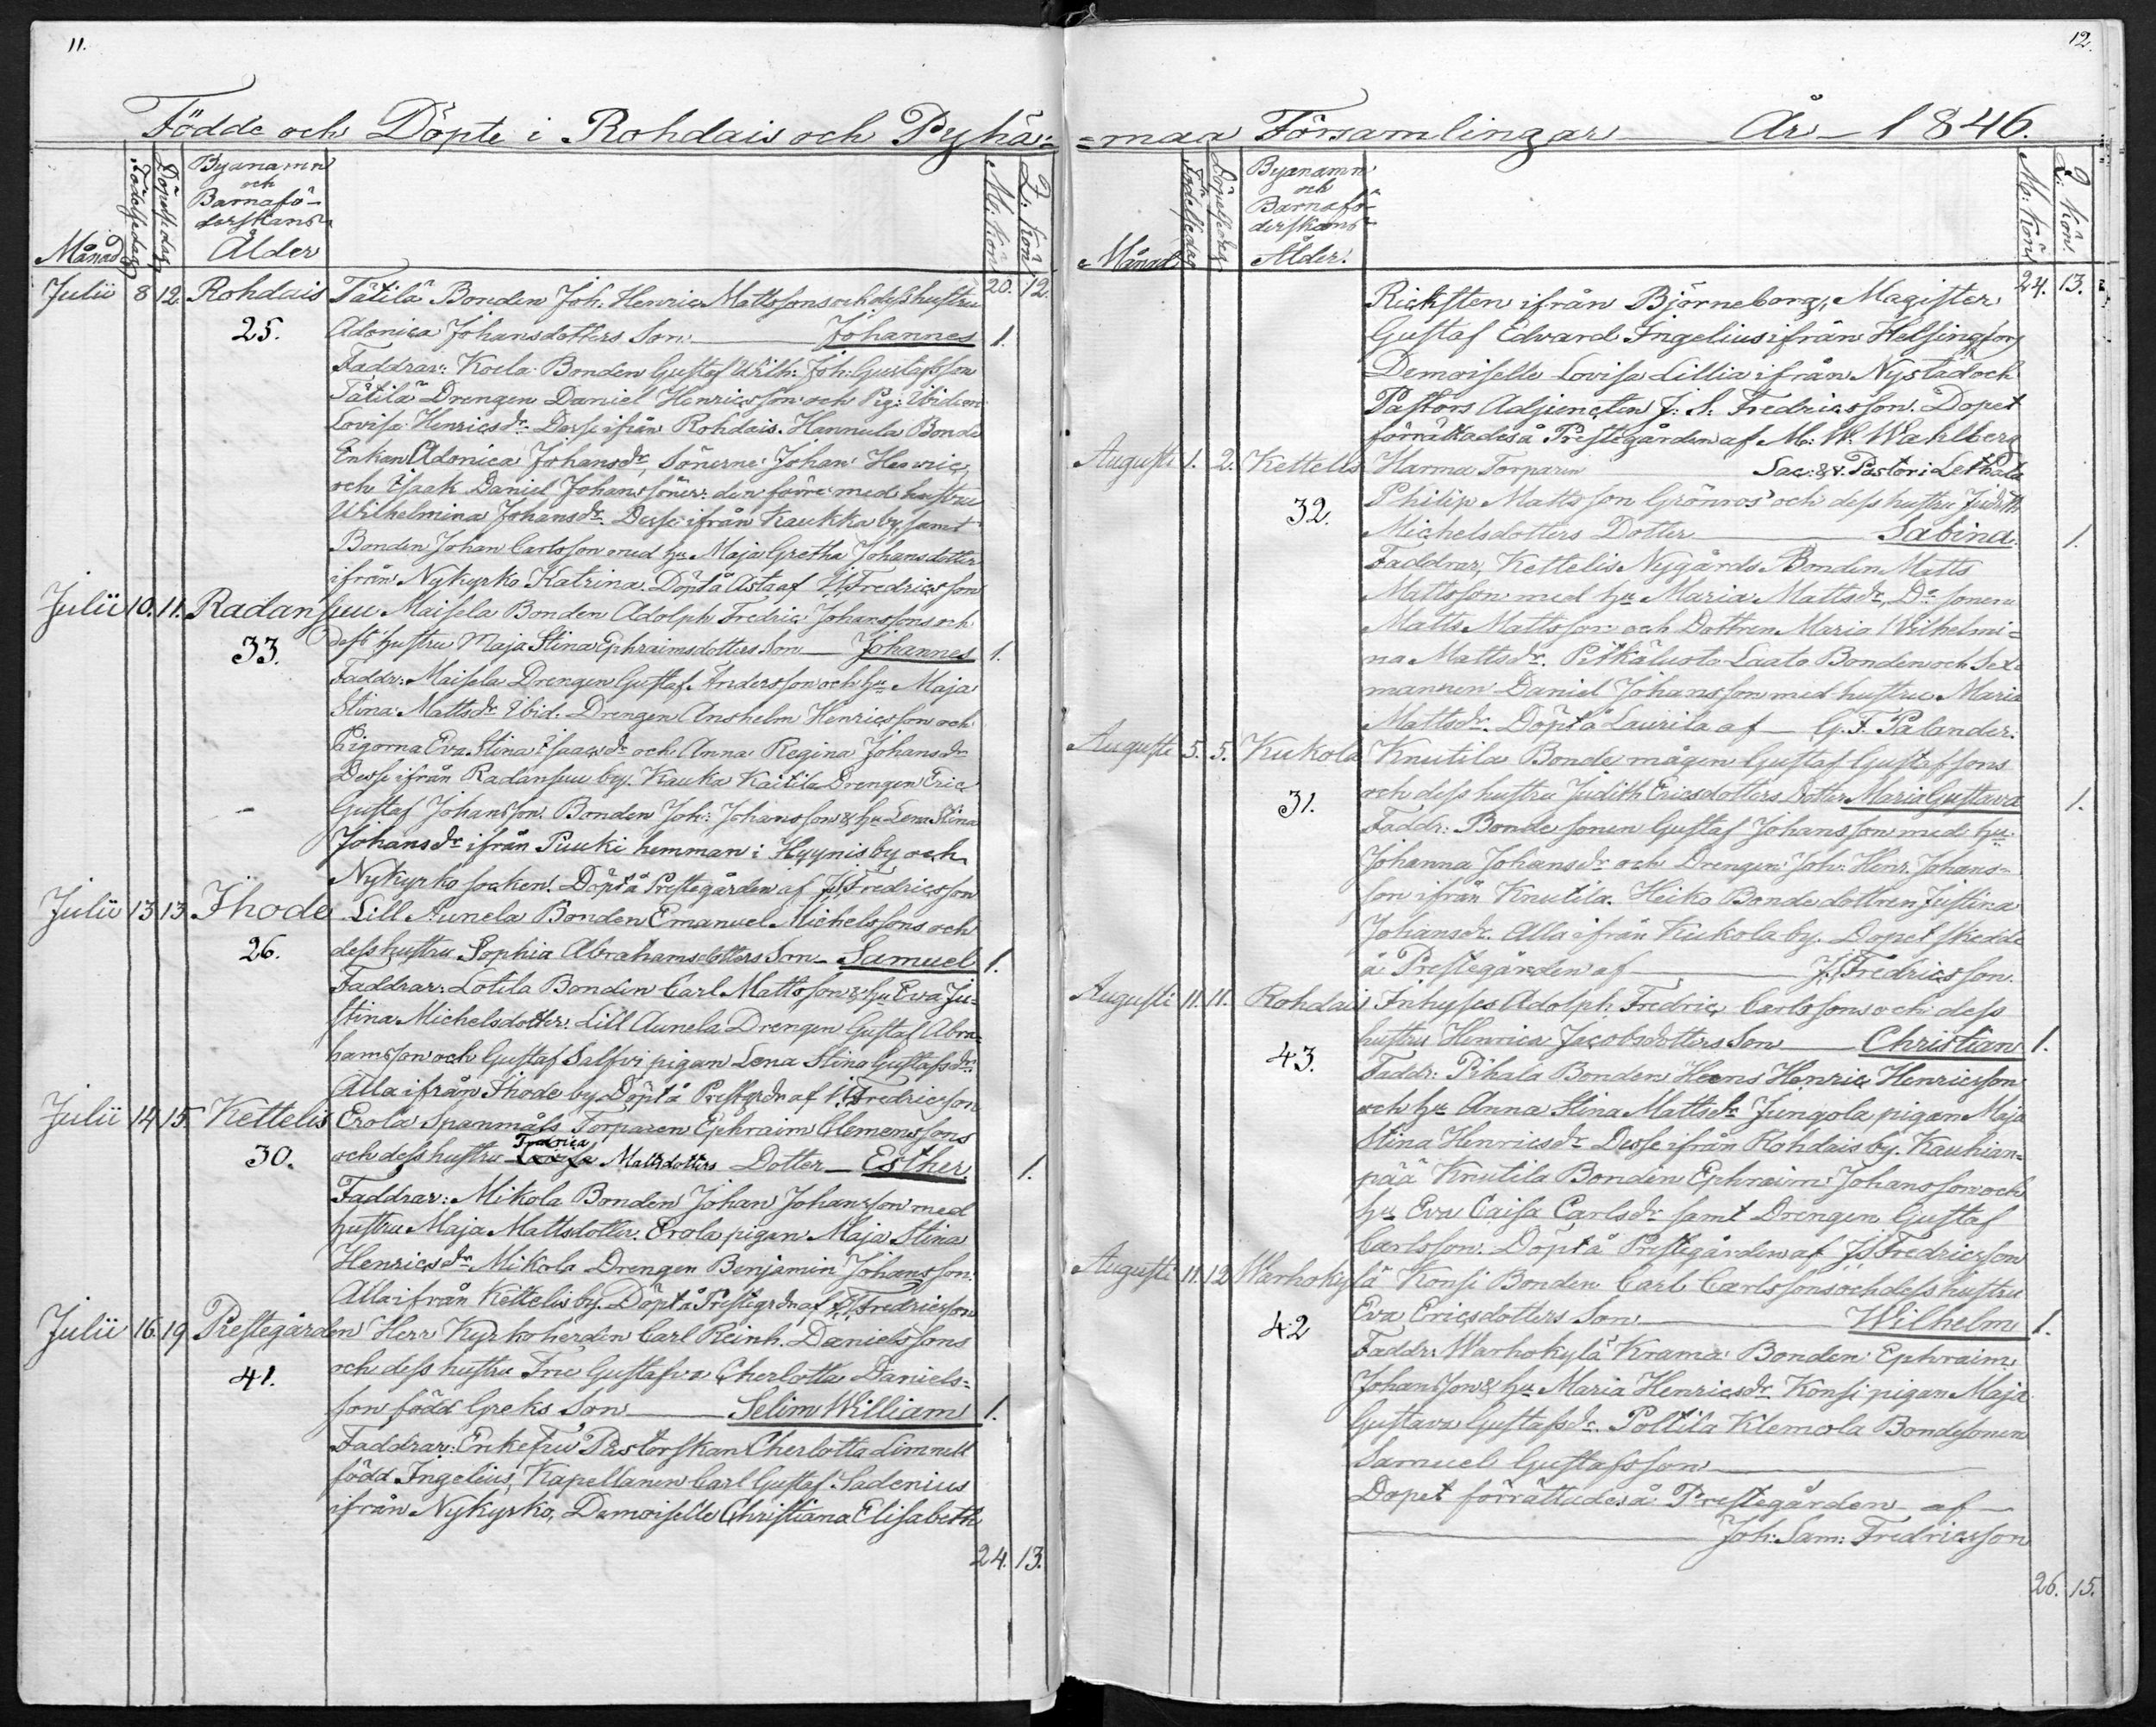 11.
Födde och Döpte i Rohdais och Pyhä=
Månad
Födelsedag
Döpelsedag
Byanamn
och
Barnafö-
derskans
Ålder
M: Kön
Q: Kön
20. 12.
Julii 8 12. Rohdais Tätilä Bonden Joh. Henric Mattssons och dess hustru
25. Adonica Johansdotters Son Johannes 1.
Faddrar: Koela Bonden Gustaf Wilh: Joh: Gustafsson
Tätilä Drengen Daniel Henricsson och Pig: Ibidem
Lovisa Henricsdr. Desse ifrån Rohdais. Hannula Bonde
Enkan Adonica Johansdr, Sönerne Johan Henric
och Isaak Daniel Johanssöner: den förre med hustru
Wilhelmina Johansdr. Desse ifrån Kaukka by samt
Bonden Johan Carlsson med hu Maja Gretha Johansdotter
ifrån Nykyrko Katrina. Döpt å Asta af J S Fredricsson
Julii 10. 11. Radansuu Maisela Bonden Adolph Fredric Johanssons och
33. dess hustru Maja Stina Ephraimsdotters Son Johannes 1.
Faddr: Maisela Drengen Gustaf Andersson och hu Maja
Stina Mattsdr Ibid. Drengen Anshelm Henricsson och
Pigorna Eva Stina Isaacsdr och Anna Regina Johansdr
Desse ifrån Radansuu by. Kauka Kaitila Drengen Eric
Gustaf Johansson. Bonden Joh: Johansson & hu Lena Stina
Johansdr ifrån Puuki hemman i Hyynis by och
Nykyrko socken. Döpt å Prestegården af J S Fredricsson
Julii 13 13. Ihode Lill Aunela Bonden Emanuel Michelssons och
26. dess hustru Sophia Abrahamsdotters Son Samuel 1.
Faddrar: Lotila Bonden Carl Mattsson & hu Eva Ju=
stina Michelsdotter. Lill Aunela Drengen Gustaf Abra=
hamsson och Gustaf Salfvi pigan Lena Stina Gustafsdr.
Alla ifrån Ihode by. Döpt å Prestegrdn af J S Fredricsson
Julii 14 15. Kettelis Erola Spanmåls Torparen Ephraim Clemenssons
Fredrica
30. och dess hustru Lovisa Mattsdotters Dotter Esther 1.
Faddrar: Mikola Bonden Johan Johansson med
hustru Maja Mattsdotter. Erola pigan Maja Stina
Henricsdr. Mikola Drengen Benjamin Johansson.
Alla ifrån Kettelis by. Döpt å Prestegrdn af J S Fredricsson
Julii 16. 19 Prestegården Herr Kyrkoherden Carl Reinh. Danielssons
41. och dess hustru Fru Gustafva Cherlotta Daniels=
son född Greks Son Selim William 1.
Faddrar: Enkefru Pastorskan Cherlotta Limnell
född Ingelius, Kapellanen Carl Gustaf Sadenius
ifrån Nykyrko, Demoiselle Christiana Elisabeth
24. 13.
12.
=maa Församlingar År 1846.
Månad
Födelsedag
Döpelsedag
Byanamn
och
Barnafö-
derskans
Ålder.
M: Kön
Q: Kön.
24. 13.
Ricksten ifrån Björneborg, Magister
Gustaf Edvard Ingelius ifrån Helsingfors
Demoiselle Lovisa Lillia ifrån Nystad och
Pastors Adjuncten J: S: Fredricsson. Dopet
förrättades å Prestegården af M: W: Wahlberg
Sac: & v. Pastor i Lethala
Augusti 1. 2. Kettelis Harma Torparen
32. Philip Mattsson Grönros och dess hustru Judith
Michelsdotters Dotter Sabina 1.
Faddrar, Kettelis Nygårds Bonden Matts
Mattsson med hu Maria Mattsdr, Do sonen
Matts Mattsson och Dottren Maria Wilhelmi=
na Mattsdr. Pitkäluoto Laato Bonden och Sex=
mannen Daniel Johansson med hustru Maria
Mattsdr. Döpt å Laurila af G. F. Palander.
Augusti 5. 5. Kukola Knutila Bonde mågen Gustaf Gustafssons
31. och dess hustru Judith Ericsdotters Dotter Maria Gustava 1.
Faddr: Bonde sonen Gustaf Johansson med hu
Johanna Johansdr och Drengen Joh: Henr. Johans=
son ifrån Knutila. Heiko Bonde dottren Justina
Johansdr. Alla ifrån Kukola by. Dopet skedde
å Prestegården af J S Fredricsson.
Augusti 11. 11. Rohdais Inhyses Adolph Fredric Carlssons och dess
43. hustru Henrica Jacobsdotters Son Christian 1.
Faddr: Pihala Bonden Hans Henric Henricsson
och hu Anna Stina Mattsdr Jungola pigan Maja
Stina Henricsdr. Desse ifrån Rohdais by. Kauhian=
pää Knutila Bonden Ephraim Johansson och
hu Eva Caisa Carlsdr samt Drengen Gustaf
Carlsson. Döpt å Prestegården af J S Fredricsson
Augusti 11. 12 Warhokylä Konsi Bonden Carl Carlssons och dess hustru
42 Eva Ericsdotters Son Wilhelm 1.
Faddr: Warhokylä Krama Bonden Ephraim
Johansson & hu Maria Henricsdr. Konsi pigan Maja
Gustava Gustafsdr. Poltila Klemola Bondesonen
Samuel Gustafsson
Dopet förrättades å Prestegården af
Joh: Sam: Fredricsson
26. 15.